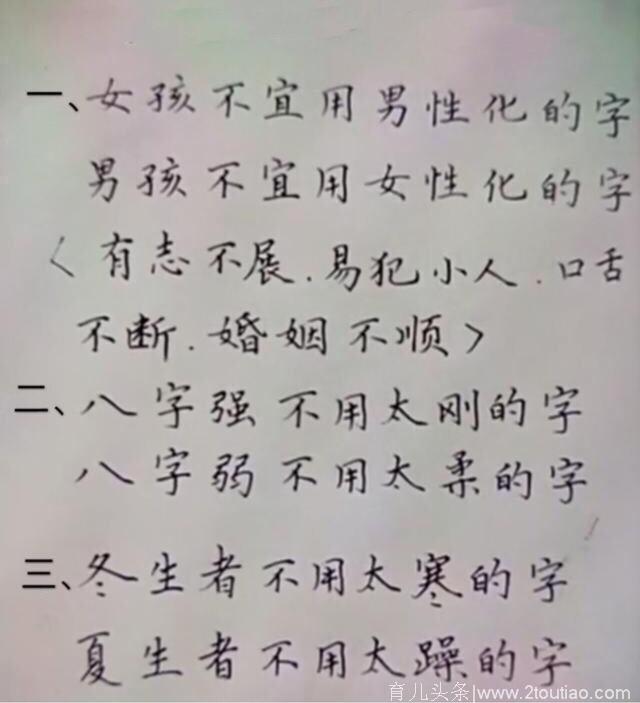 一、女孩不宜用男性化的字
男孩不宜用女性化的字
〈有志不展.易犯小人.口舌
不断.婚姻不顺〉
二、八字强不用太刚的字
八字弱不用太柔的字
三、冬生者不用太寒的字
夏生者不用太躁的字
育儿头条|www.2toutiao.com